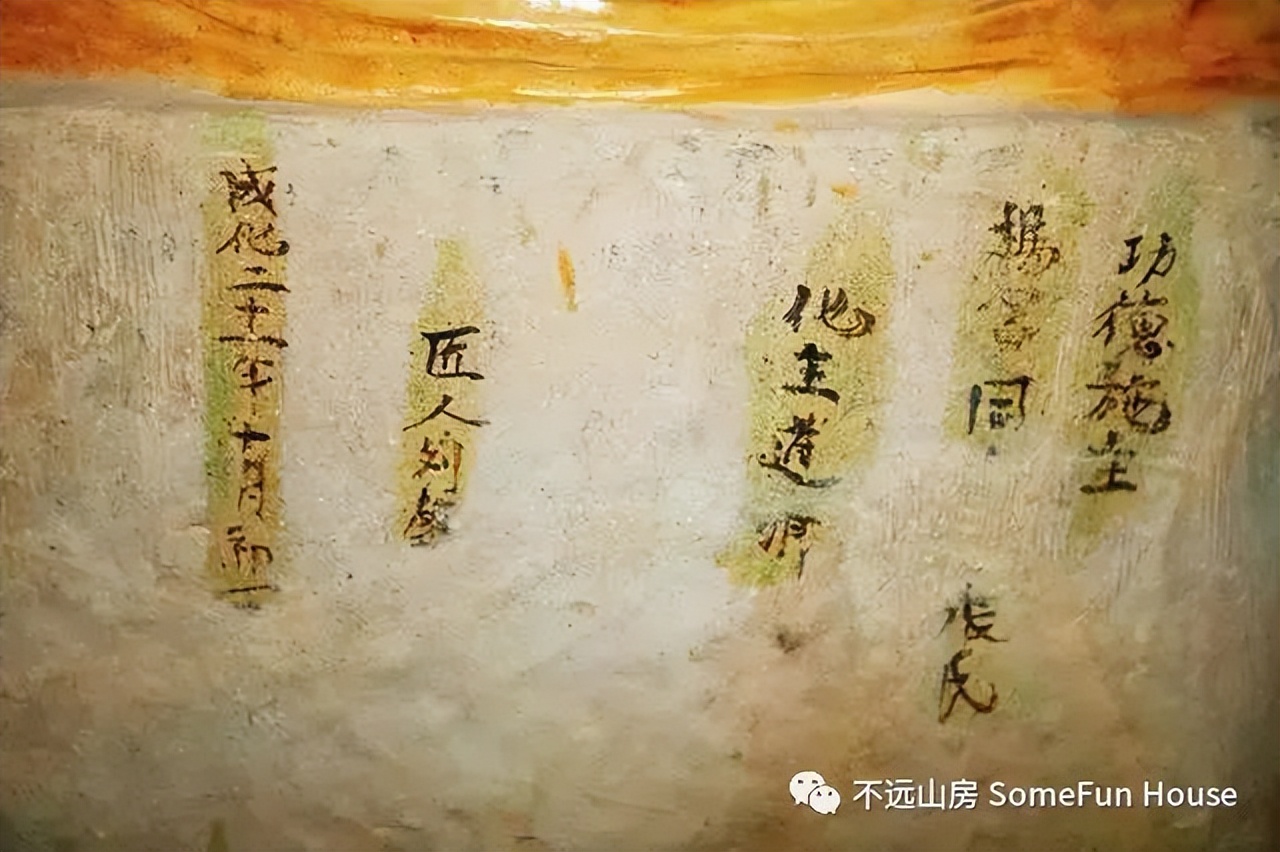 功德施主
楊 同
張氏
化主道
匠人刘
成化二十一年十月初一
不远山房 SomeFun House